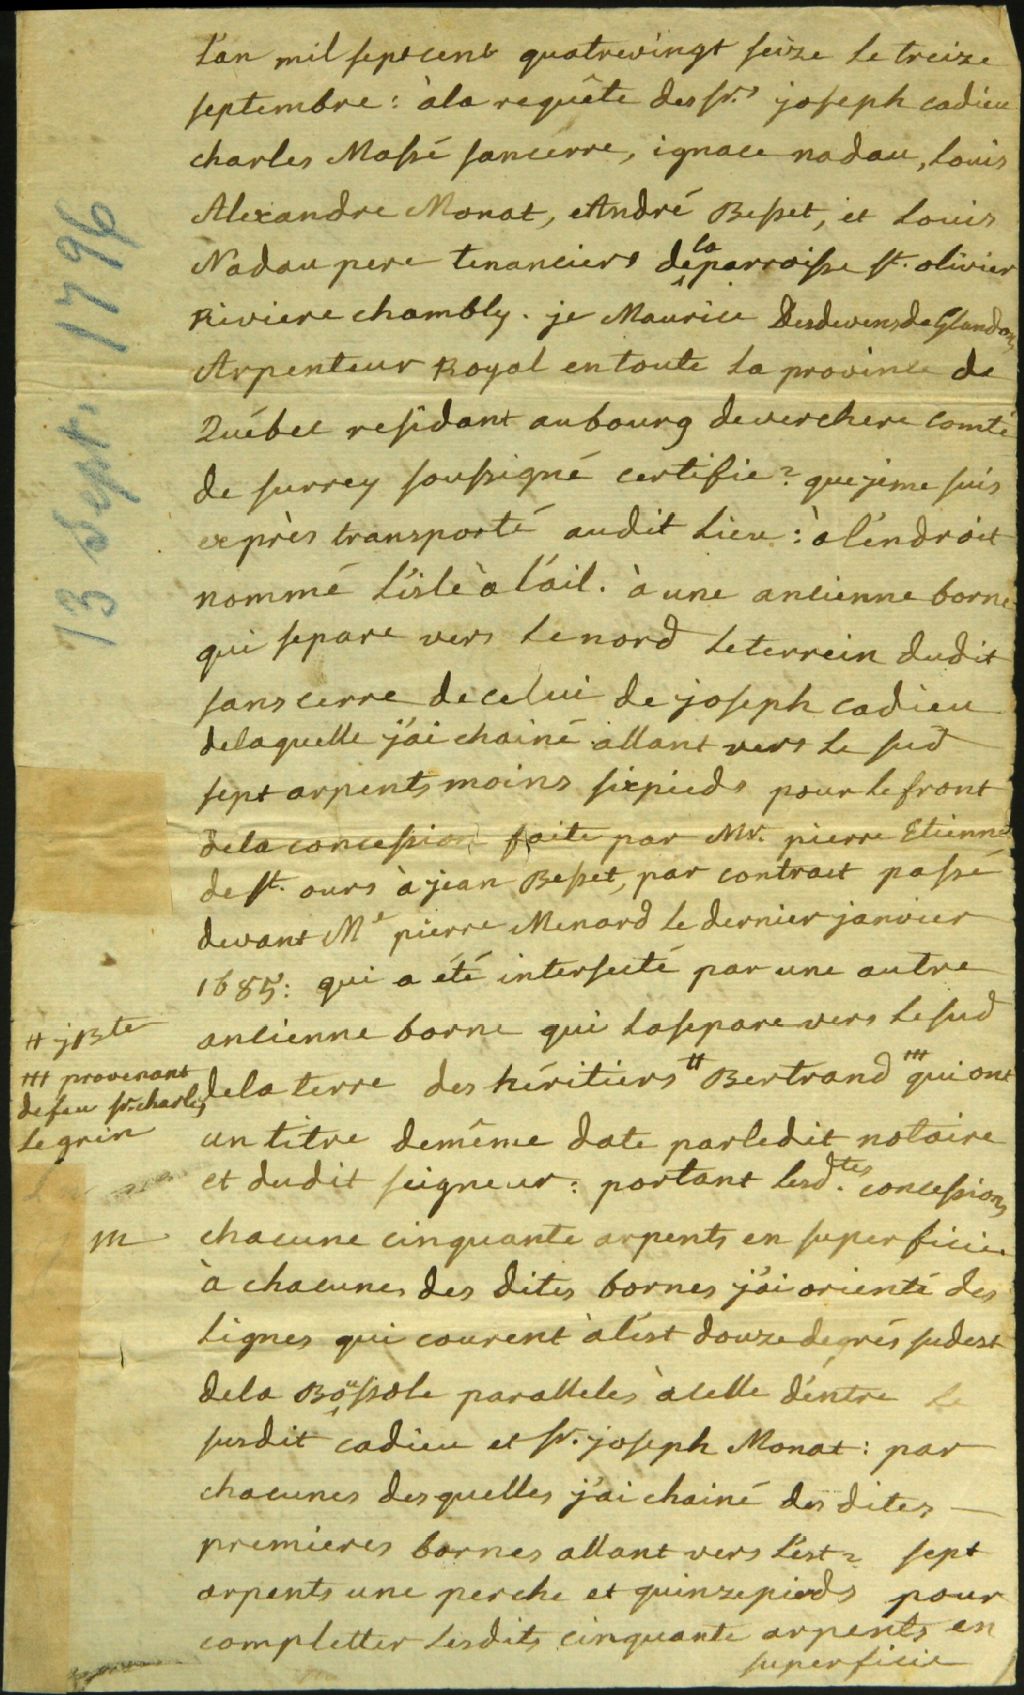 L'an mil sept cent quatrevingt seize le treize
septembre : à la requête des Srs joseph cadieu
charles Massé sancerre, ignace nadau, Louis
Alexandre Monat, et André Besset, et Louis
Nadau pere tenanciers de la parroisse St. olivier
Riviere chambly. je Maurice Desdevens de Glandons
Arpenteur Royal en toute la province de
Québec residant au bourg de verchere comté
de surrey soussigné certifie que je me suis
exprès transporté audit Lieu : à l'endroit
nommé L'isle à l'ail. à une ancienne borne
qui separe vers le nord le terrein dudit
sanscerre de celui de joseph cadieu
de laquelle j'ai chainé allant vers le sud
sept arpents moins six pieds pour le front
de la concession faite par Mr. pierre Etienne
de St. ours à jean Besset, par contract passé
devant Me pierre Menard le dernier janvier
1685 : qui a été intersecté par une autre
ancienne borne qui la separe vers le sud
# jBte
### provenant
de feu Sr. charles
Legrin
de la terre des héritiers # Bertrand ### qui ont
un titre de même date par ledit notaire
et dudit seigneur : portant lesd.tes concessions
m
chacune cinquante arpents en superficie
à chacunes des dites bornes j'ai orienté des
Lignes qui courent à l'ést douze degrés sudest
de la Boussole paralleles à celle d'éntre le
susdit cadieu et Sr. joseph Monat : par
chacunes desquelles j'ai chainé des dites
premieres bornes allant vers l'est sept
arpents une perche et quinze pieds pour
completter lesdits cinquante arpents en
superficie
13 Sept. 1796